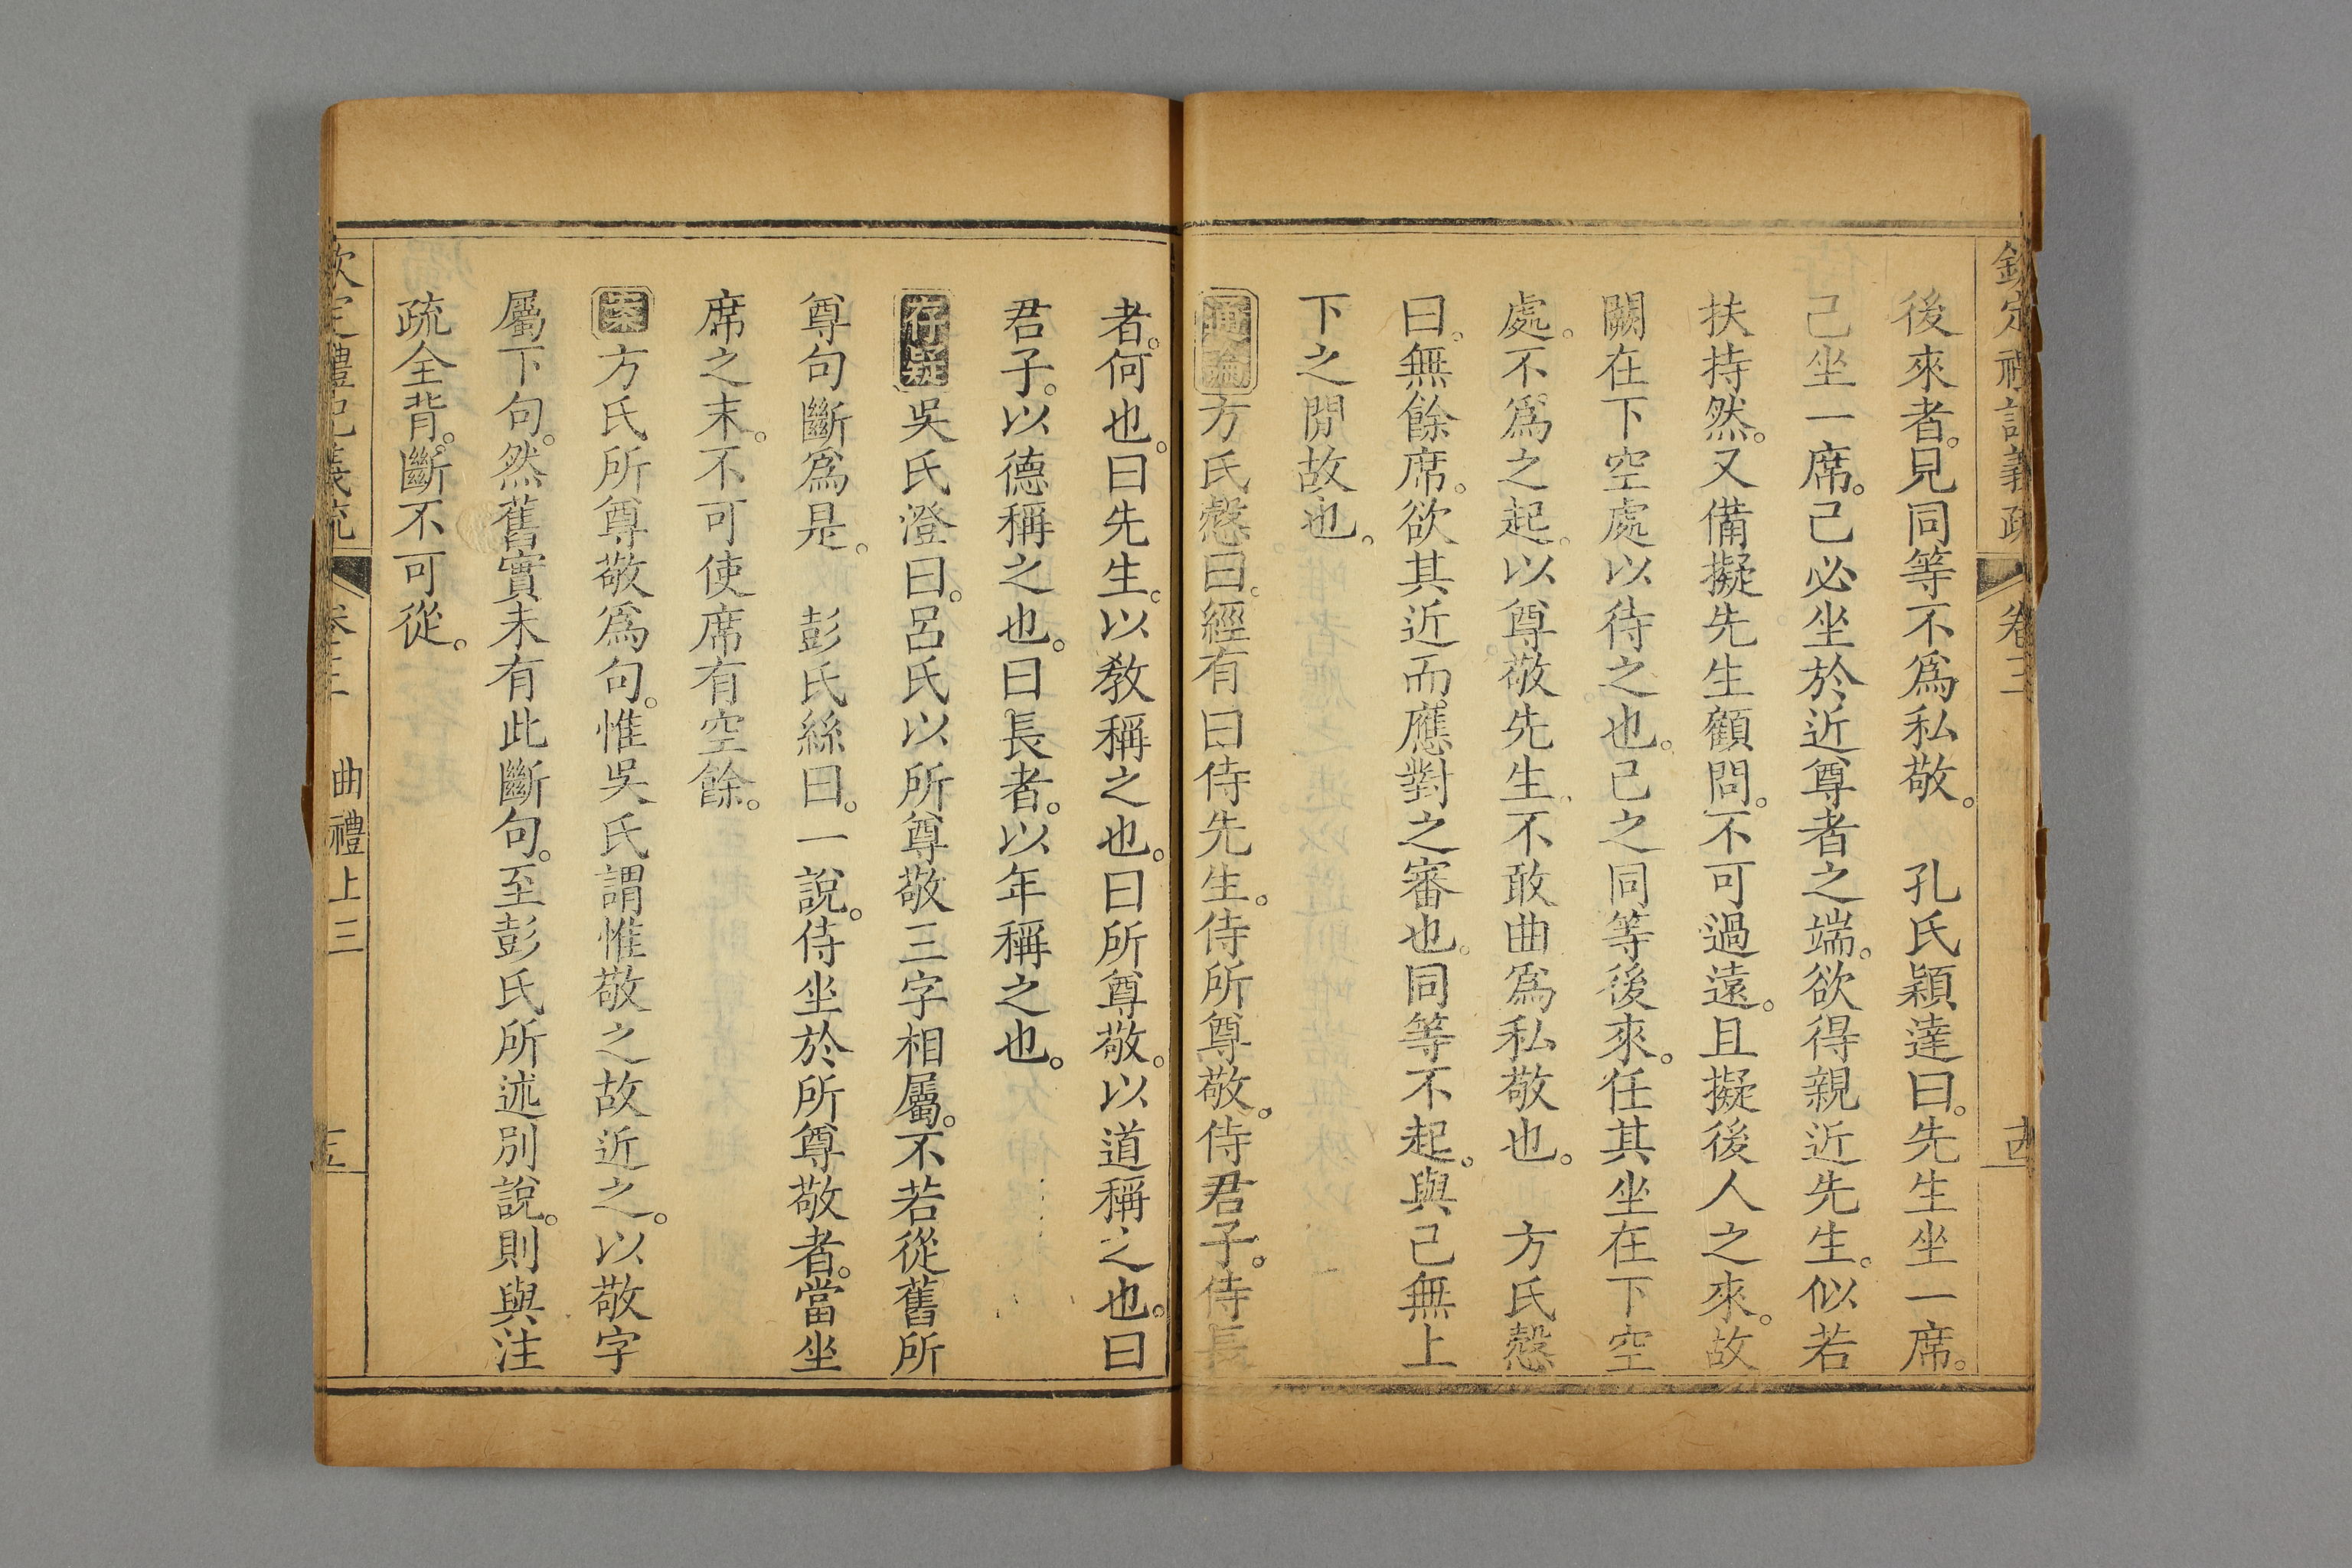 欽定禮記義疏 卷三
後來者。見同等不爲私敬。 孔氏穎達曰。先生坐一席。
己坐一席。己必坐於近尊者之端。欲得親近先生。似若
扶持然。又備擬先生顧問。不可過遠。且擬後人之來。故
闕在下空處以待之也。己之同等後來。任其坐在下空
處。不爲之起。以尊敬先生。不敢曲爲私敬也。 方氏慤
曰。無餘席。欲其近而應對之審也。同等不起。與己無上
下之閒故也。
通論方氏慤曰。經有曰侍先生。侍所尊敬。侍君子。侍長
者。何也。曰先生。以教稱之也。曰所尊敬。以道稱之也。曰
君子。以德稱之也。曰長者。以年稱之也。
存疑吳氏澄曰。呂氏以所尊敬三字相屬。不若從舊所
尊句斷爲是。 彭氏絲曰。一說。侍坐於所尊敬者。當坐
席之末。不可使席有空餘。
案方氏所尊敬爲句。惟吳氏謂惟敬之故近之。以敬字
屬下句。然舊實未有此斷句。至彭氏所述別說。則與注
疏全背。斷不可從。
欽定禮記義疏 卷三 曲禮上三